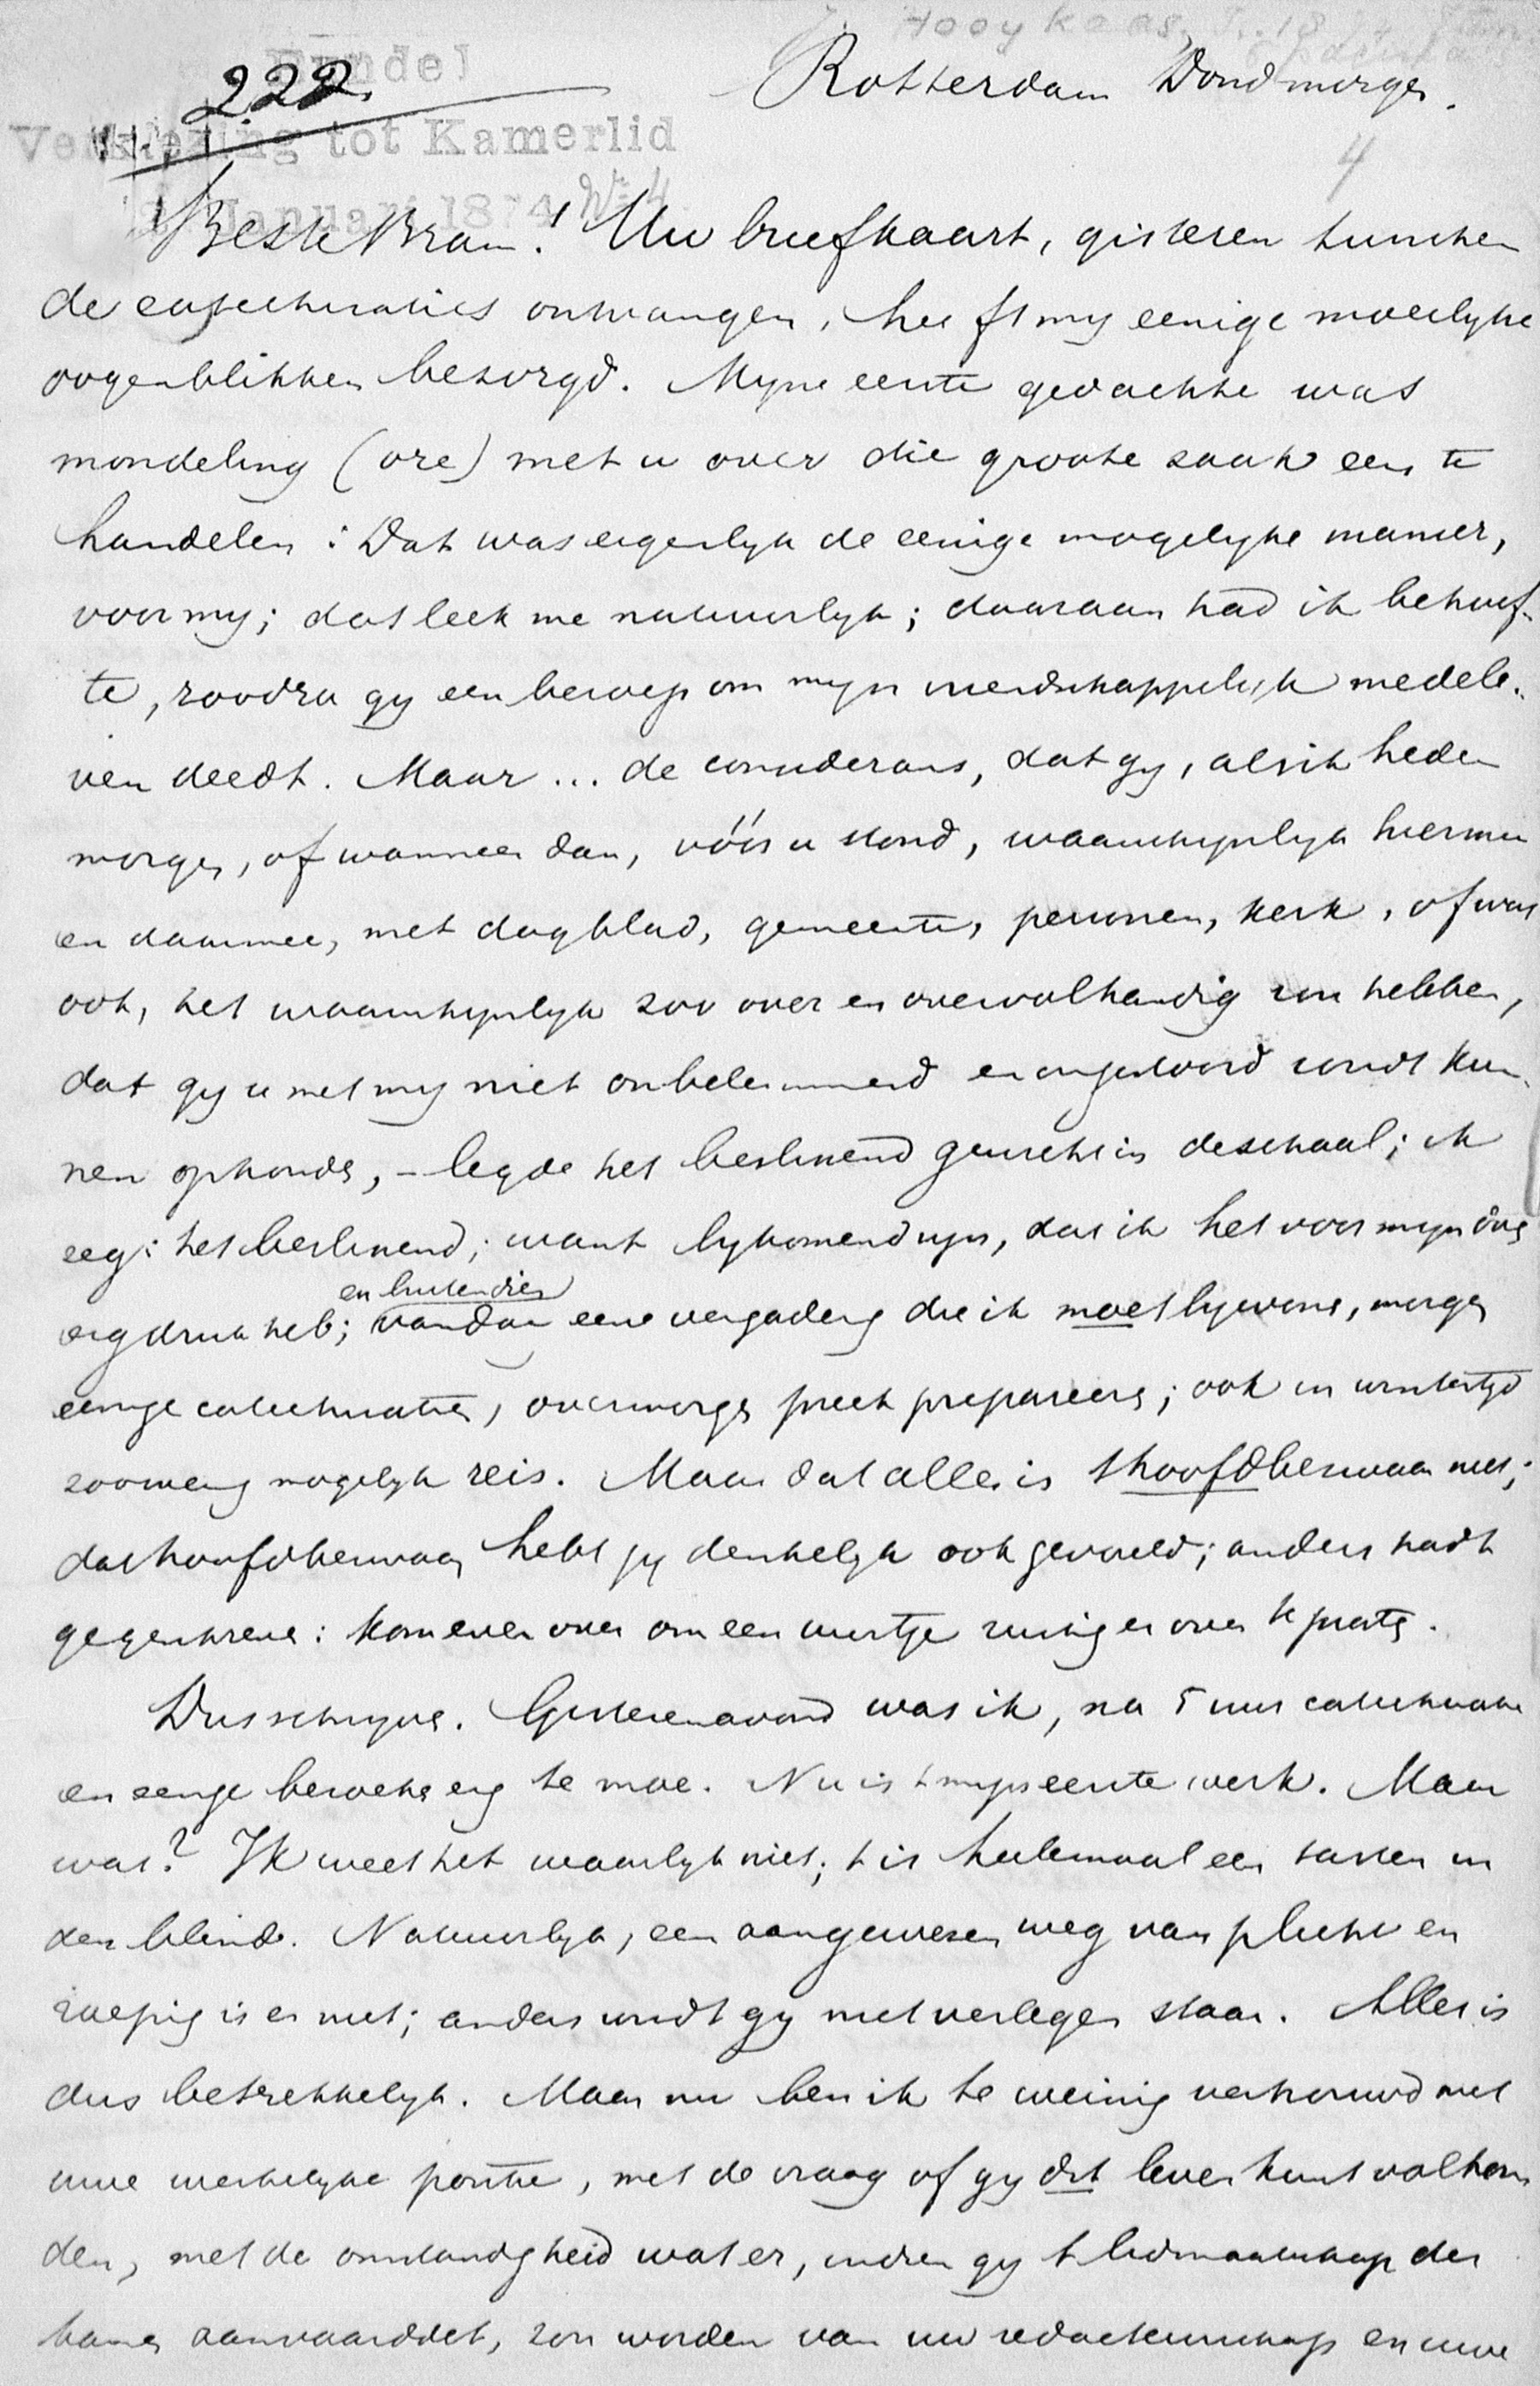 Hooykaas, J. 18
Bundel
222.
Verkiezing tot Kamerlid
Januari 1874 No 4
Rotterdam Dond morgen.
4
Beste Bram! Uw briefkaart, gisteren tusschen
de catechisaties ontvangen, heeft my eenige moeilyke
oogenblikken bezorgd. Myne eerste gedachte was
mondeling (ore) met u over die groote zaak een te
handelen: Dat was eigenlyk de eenige mogelyke manier,
voor my; dat leek me natuurlyk; daaraan had ik behoef-
te, zoodra gy een beroep om myn vriendschappelyk medele-
ven deedt. Maar ... de considerans, dat gy, als ik heden
morgen, of wanneer dan, vóór u stond, waarschynlyk hiermee
en daarmee, met dagblad, gemeente, personen, kerk, of wat
ook, het waarschynlyk zoo over en overvolhandig zou hebben,
dat gy u met my niet onbelemmerd en ongestoord zoudt kun-
nen ophouden, - legde het beslissend gewicht in de schaal; ik
zeg: het beslissend; want bykomend zyn, dat ik het voor myn doen
erg druk heb; en buitendien vandaag eene vergadering die ik moet bywonen, morgen
eenige catechisaties, overmorgen preek prepareeren; ook in wintertyd
zoo weinig mogelyk reis. Maar dat alles is 't hoofdbezwaar niet;
dat hoofdbezwaar hebt gy denkelyk ook gevoeld; anders hadt
geschreven: kom even over om een uurtje rustig er over te praten.
Dus schryven. Gisterenavond was ik, na 5 uur catechisatie
en eenige bezoeken erg te moe. Nu is 't myn eerste werk. Maar
wat? Ik weet het waarlyk niet; 't is heelemaal een tasten in
den blinde. Natuurlyk, een aangewezen weg van plicht en
roeping is er niet; anders zoudt gy niet verlegen staan. Alles is
dus betrekkelyk. Maar nu ben ik te weinig vertrouwd met
uwe werkelyke positie, met de vraag of gy dit leven kunt volhou-
den, met de omstandigheid wat er, indien gy 't lidmaatschap der
kamer aanvaarddet, zou worden van uw redacteurschap en uwe